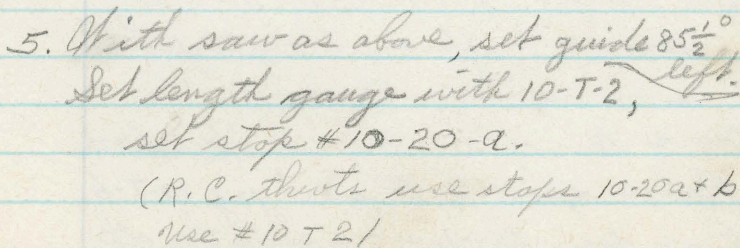 5. With saw as above, set guide 85½° left.
Set length gauge with 10-T-2,
set stop #10-20-a.
(R.C. use stops 10-20a + b
Use #10 T 2)